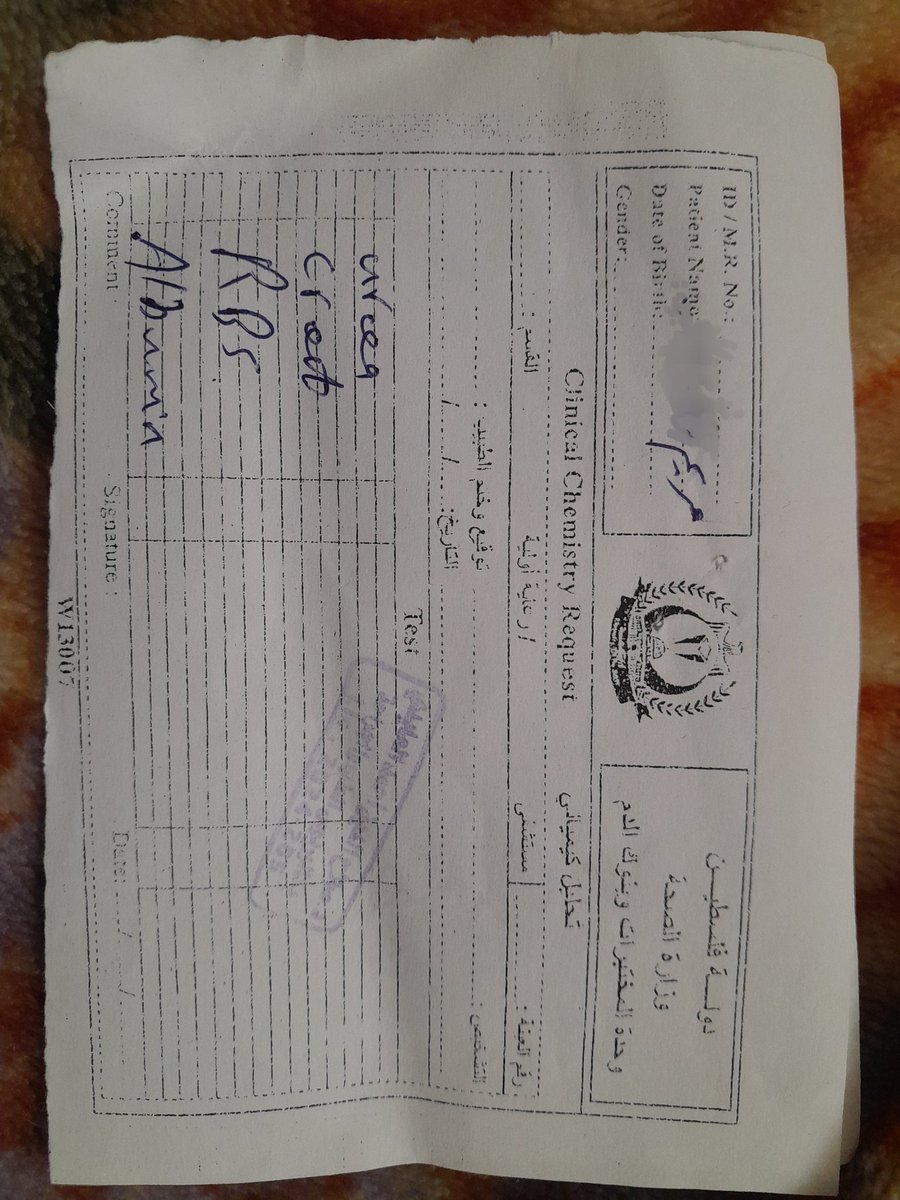 ID / M.R. No.:
Patient Name:
مريم
Date of Birth:
Gender:
دولة فلسطين
وزارة الصحة
وحدة المختبرات وبنوك الدم
Clinical Chemistry Request
تحليل كيميائي
القسم :
/ رعاية أولية
مستشفى
رقم العينة :
توقيع وختم الطبيب :
التشخيص :
التاريخ: / /
Test
urea
creat
RBS
Albumin
Comment :
Signature :
Date: / /
W13007